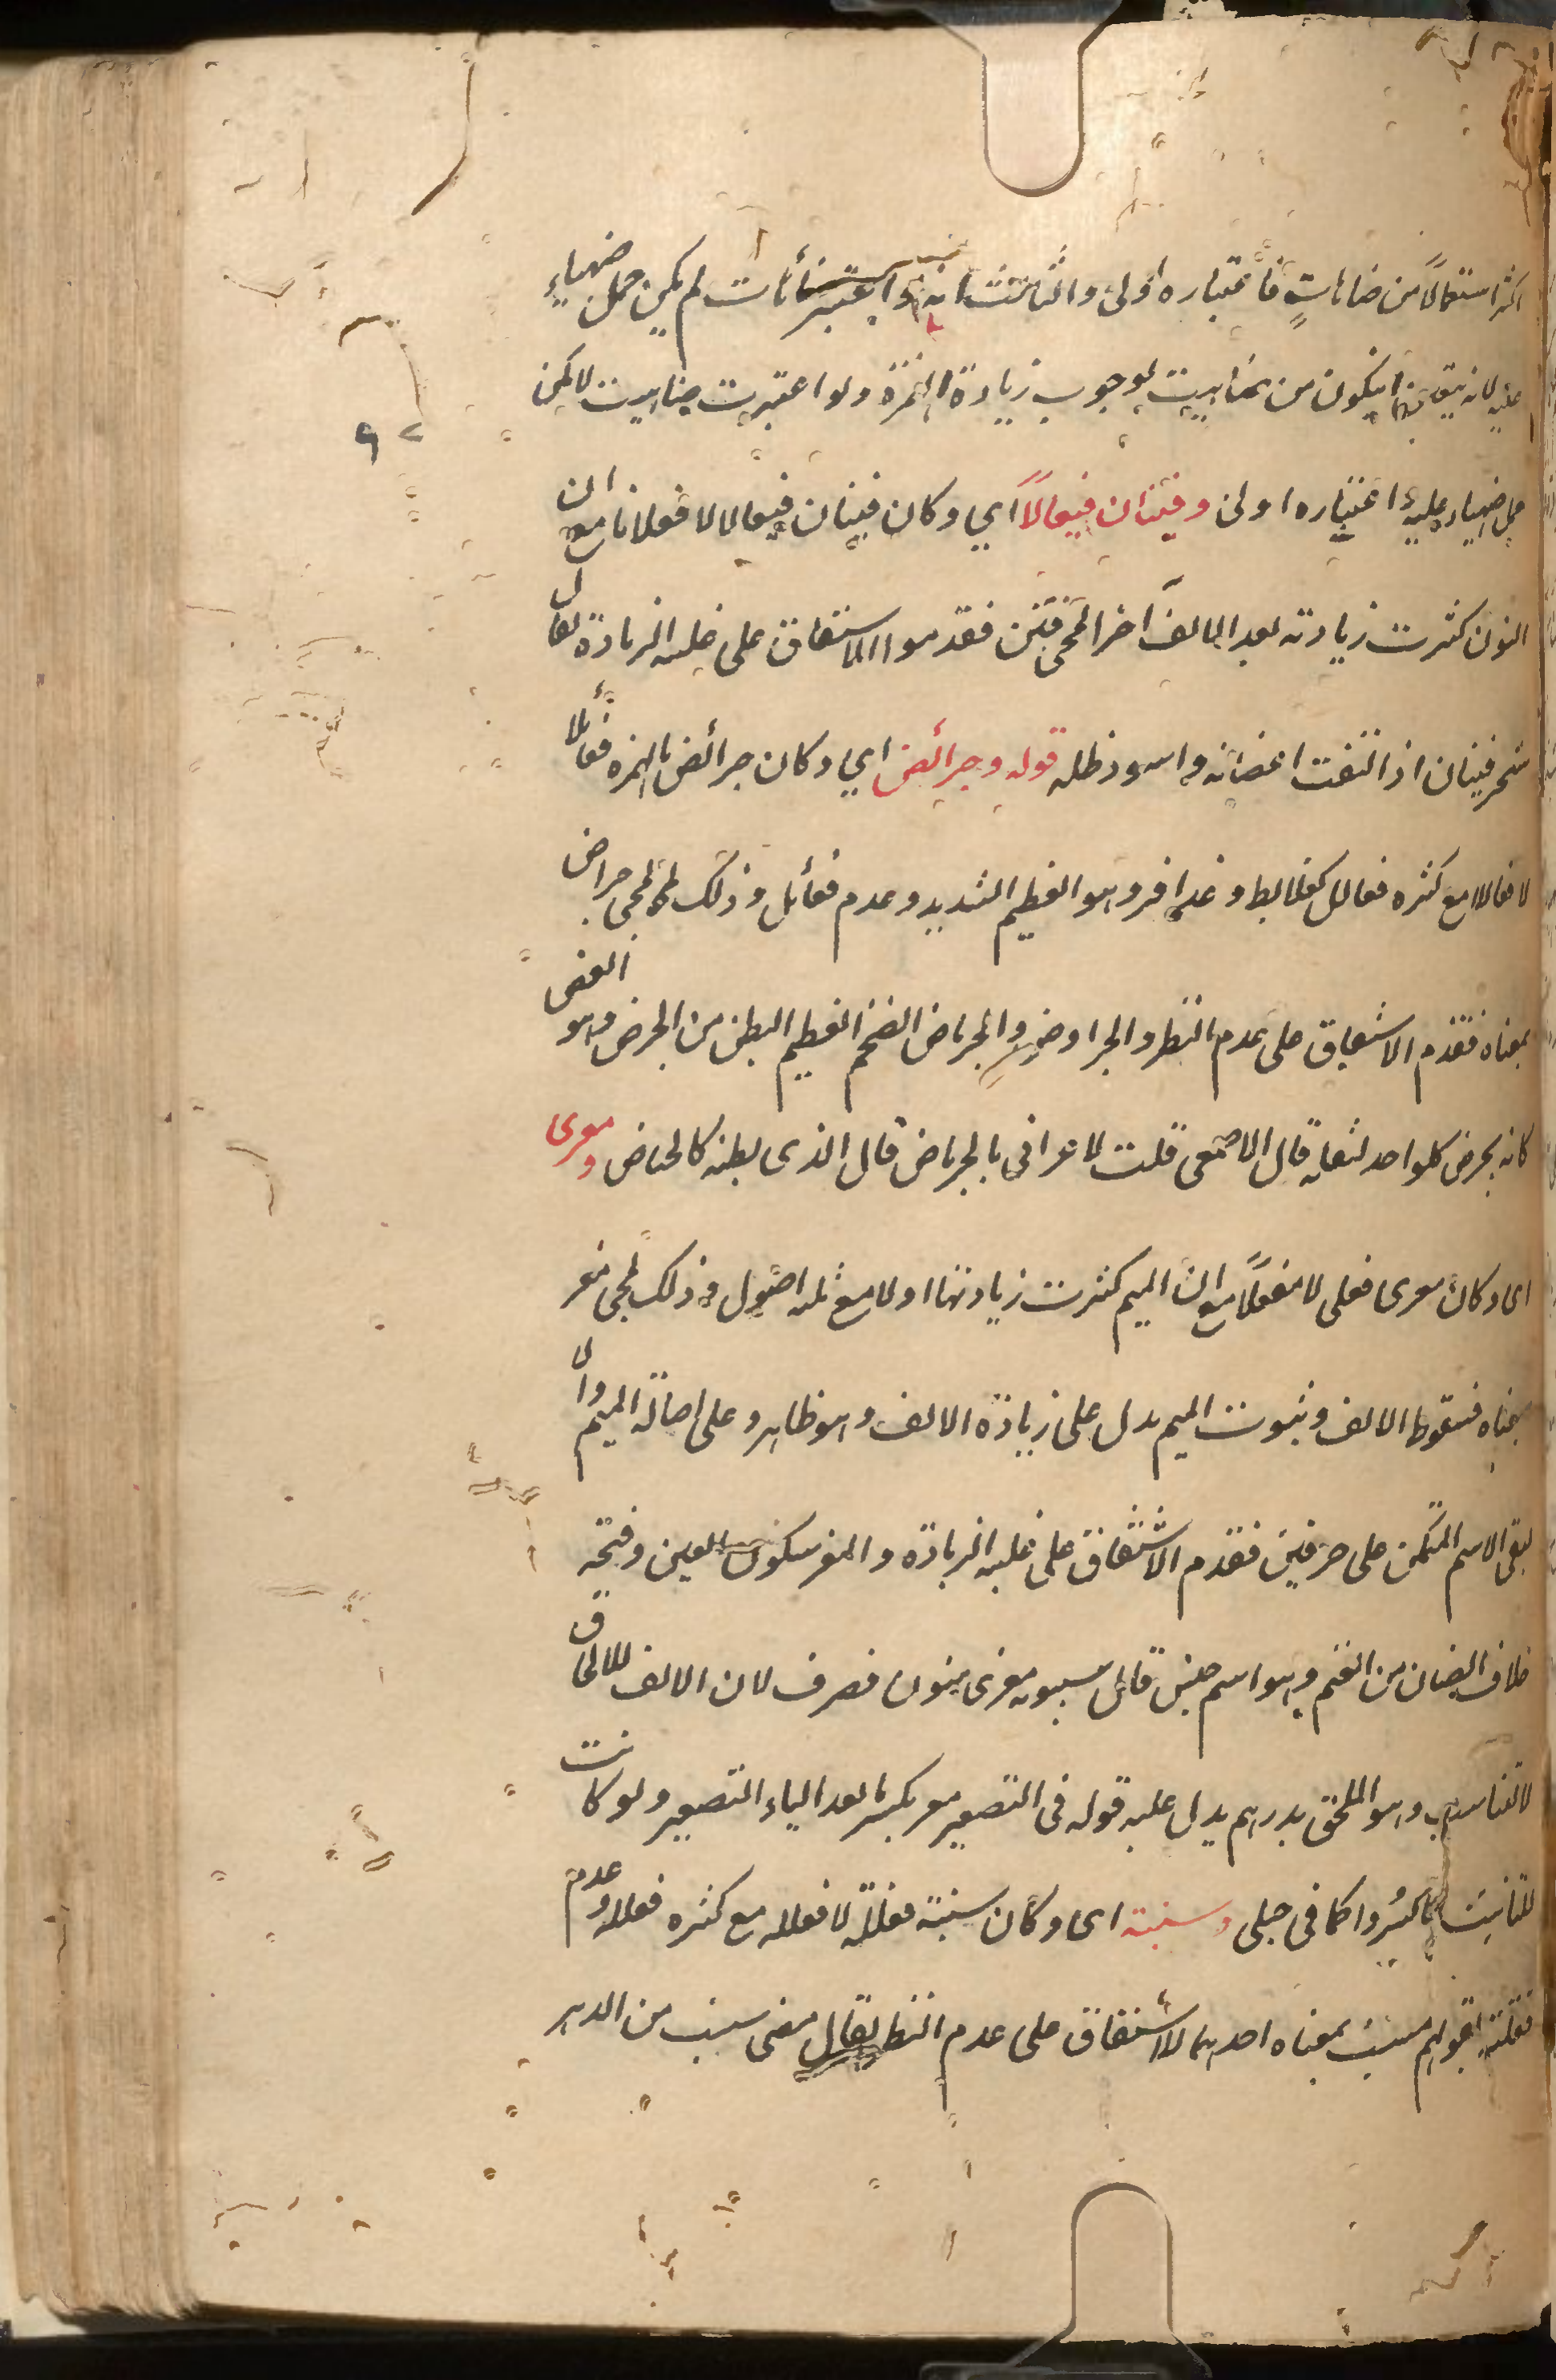 اكثر استعمالا من ضاهات فاعتباره اولى والثالث انه لو اعتبر ضأت لم يكن حمل ضهياء
عليه لانه يتعين ان يكون من ضاهيت لوجوب زيادة الهمزة ولو اعتبرت ضاهيت لامكن
حمل ضهياء عليه فاعتباره اولى وفينان فيعالا اي وكان فينان فيعالا لا فعلانا مع ان
النون كثرت زيادته بعد الالف آخرا لمجئ فنن فقدموا الاشتقاق على غلبه الزيادة يقال
شجر فينان اذا التفت اغصانه واسود ظله قوله وجرائض اي وكان جرائض بالهمزه فعائلا
لا فعاللا مع كثره فعالل كعلابط وعذافر وهو العظيم الشديد وعدم فعائل وذلك لمجئ جراض
بمعناه فقدم الاشتقاق على عدم النظير والجراوض والجرياض الضخم العظيم البطن من الجرض وهو الغصص
كانه يجرض كل واحد لثقله قال الاصمعى قلت لاعرابى ما الجرياض قال الذى بطنه كالحياض ومعزى
اى وكان معزى فعلى لا مفعلا مع ان الميم كثرت زيادتها اولا مع ثلثه اصول وذلك لمجئ معز
بمعناه فسقوط الالف وثبوت الميم يدل على زيادة الالف وهو ظاهر وعلى اصالة الميم والا
لبقى الاسم المتمكن على حرفين فقدم الاشتقاق على غلبه الزيادة والمعز بسكون العين وفتحه
خلاف الضان من الغنم وهو اسم جنس قال سيبويه معزى منون مصرف لان الالف للالحاق
لا للتانيث وهو الملحق بدرهم يدل عليه قوله فى التصغير معيز بكسر ما بعد الياء التصغير ولو كانت
للتانيث ما كسروا كما فى حبلى وسنبته اى وكان سنبته فعلته لا فعلله مع كثره فعلله وعدم
فعلته لقولهم سنب بمعناه احدهما للاشتقاق على عدم النظير يقال مضى سنب من الدهر